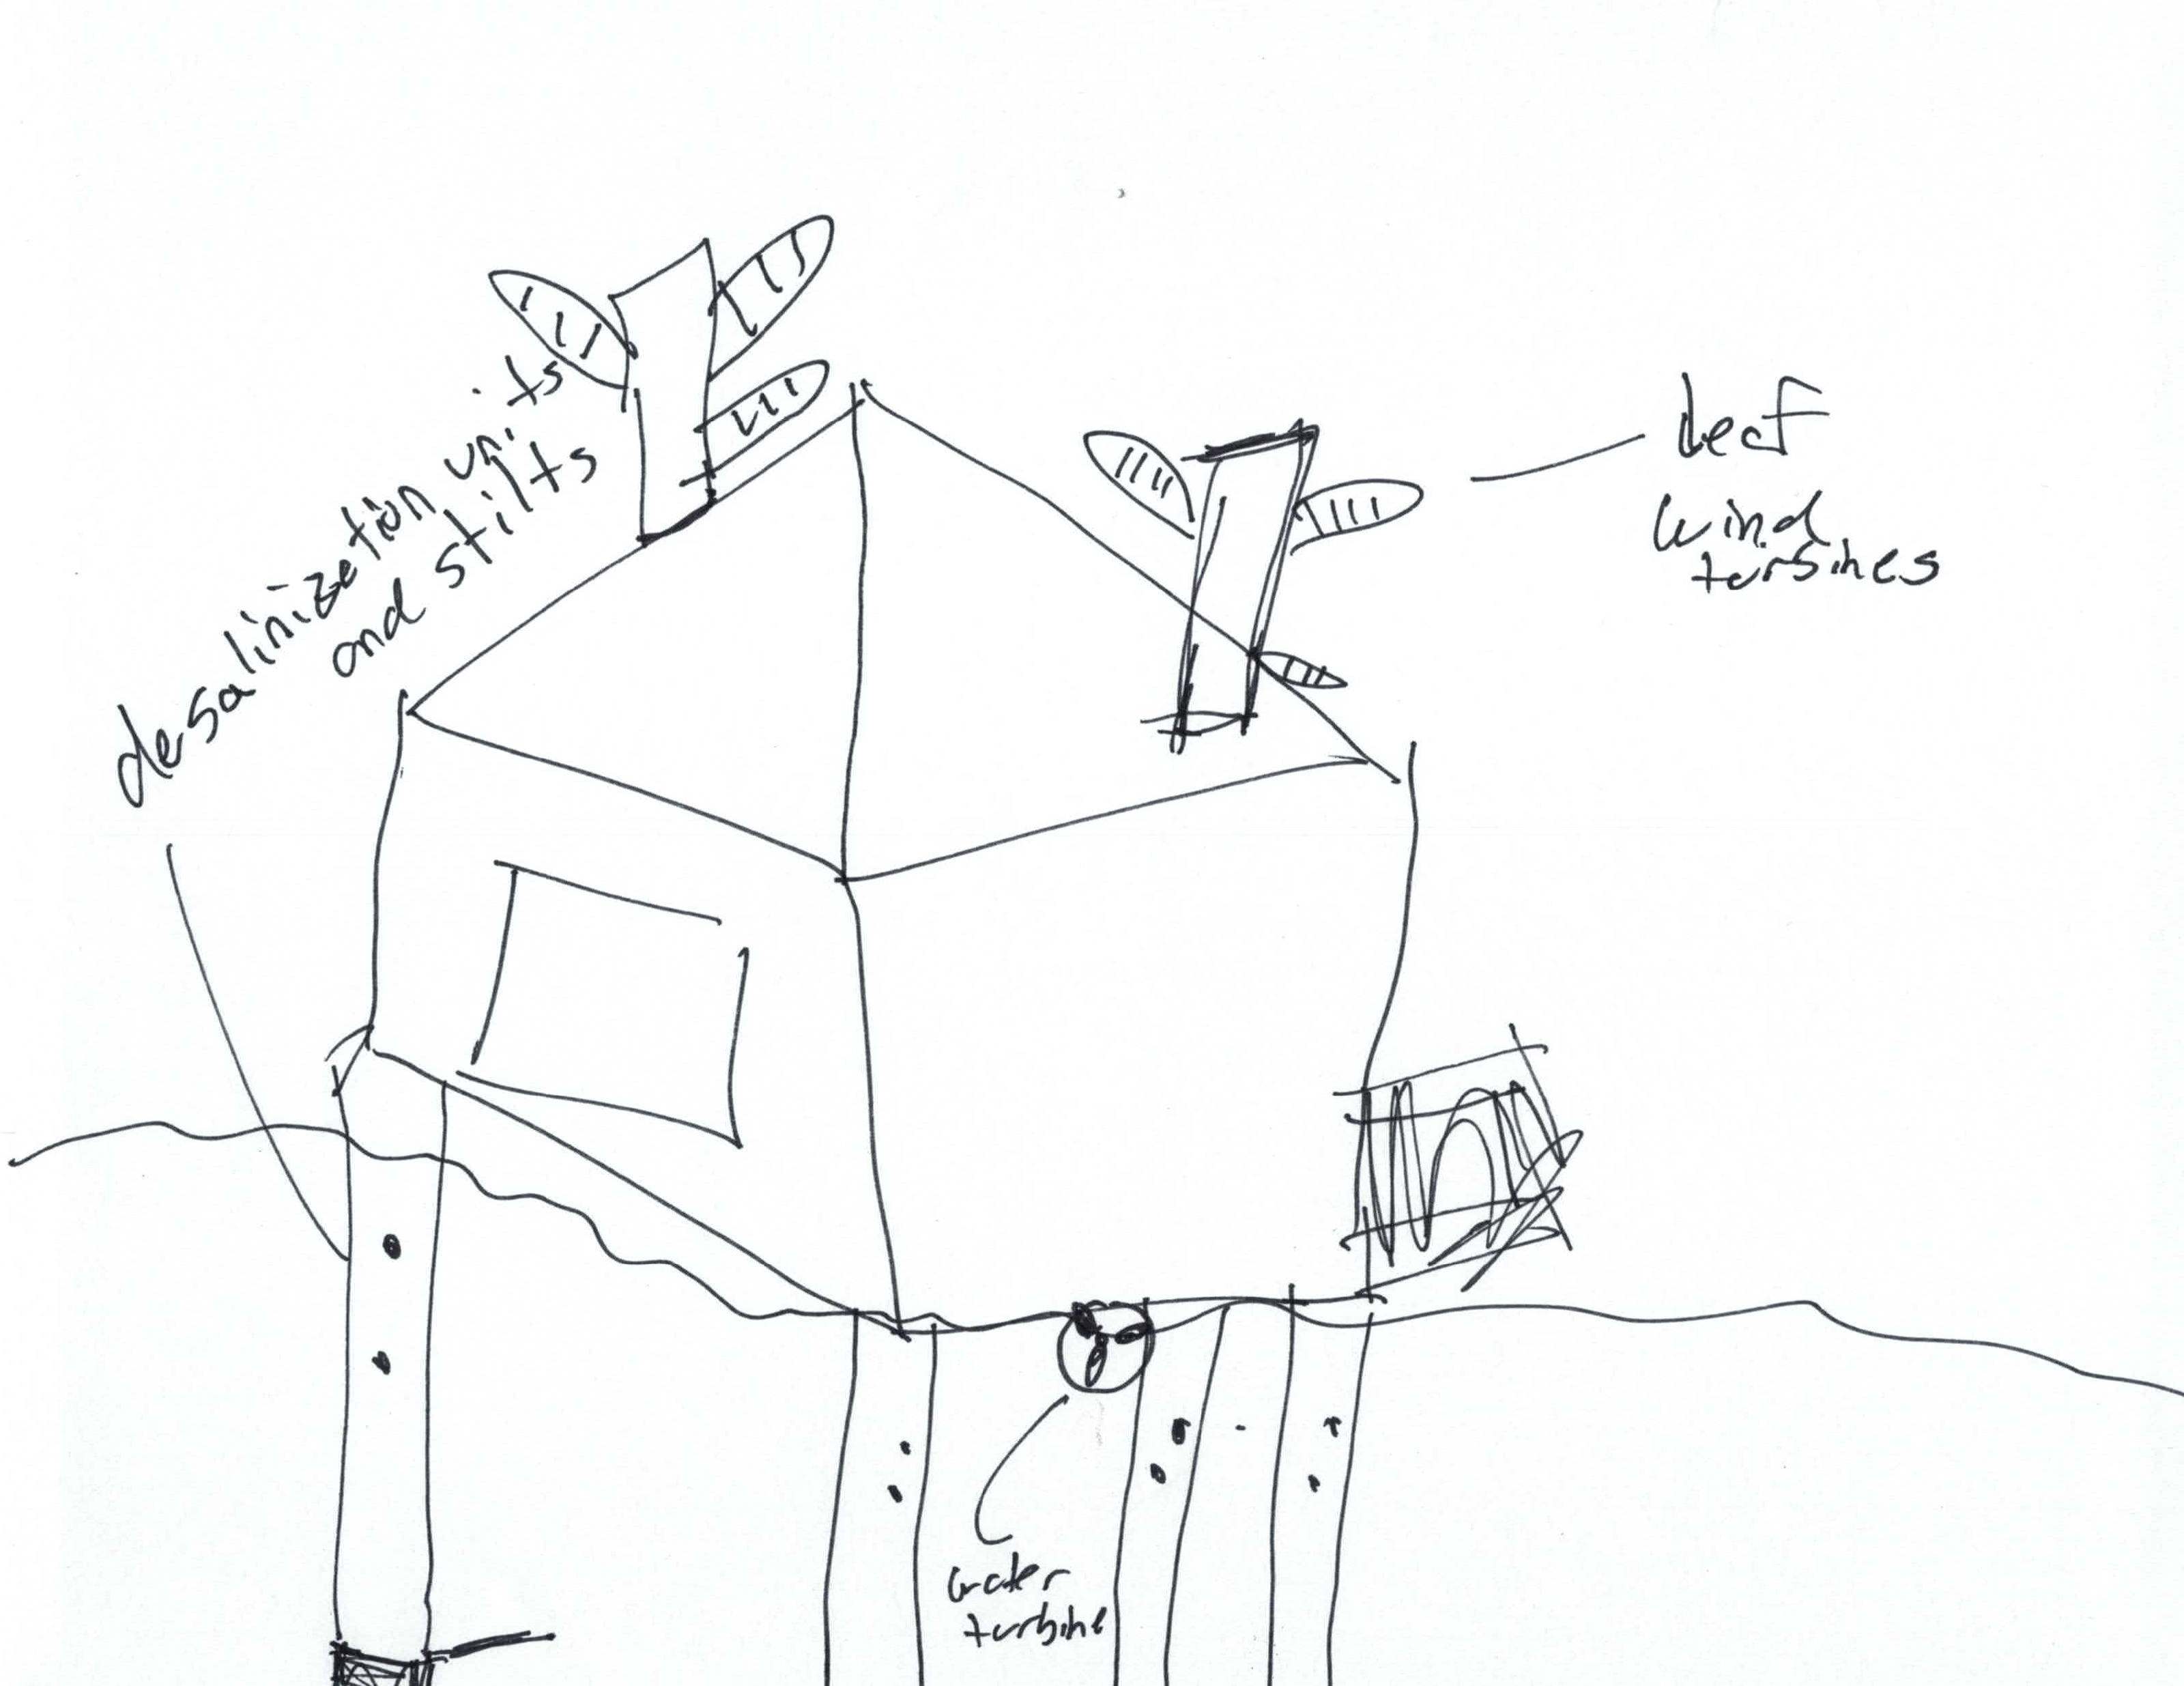 desalinization units
and stilts
leaf
wind
turbines
water
turbine